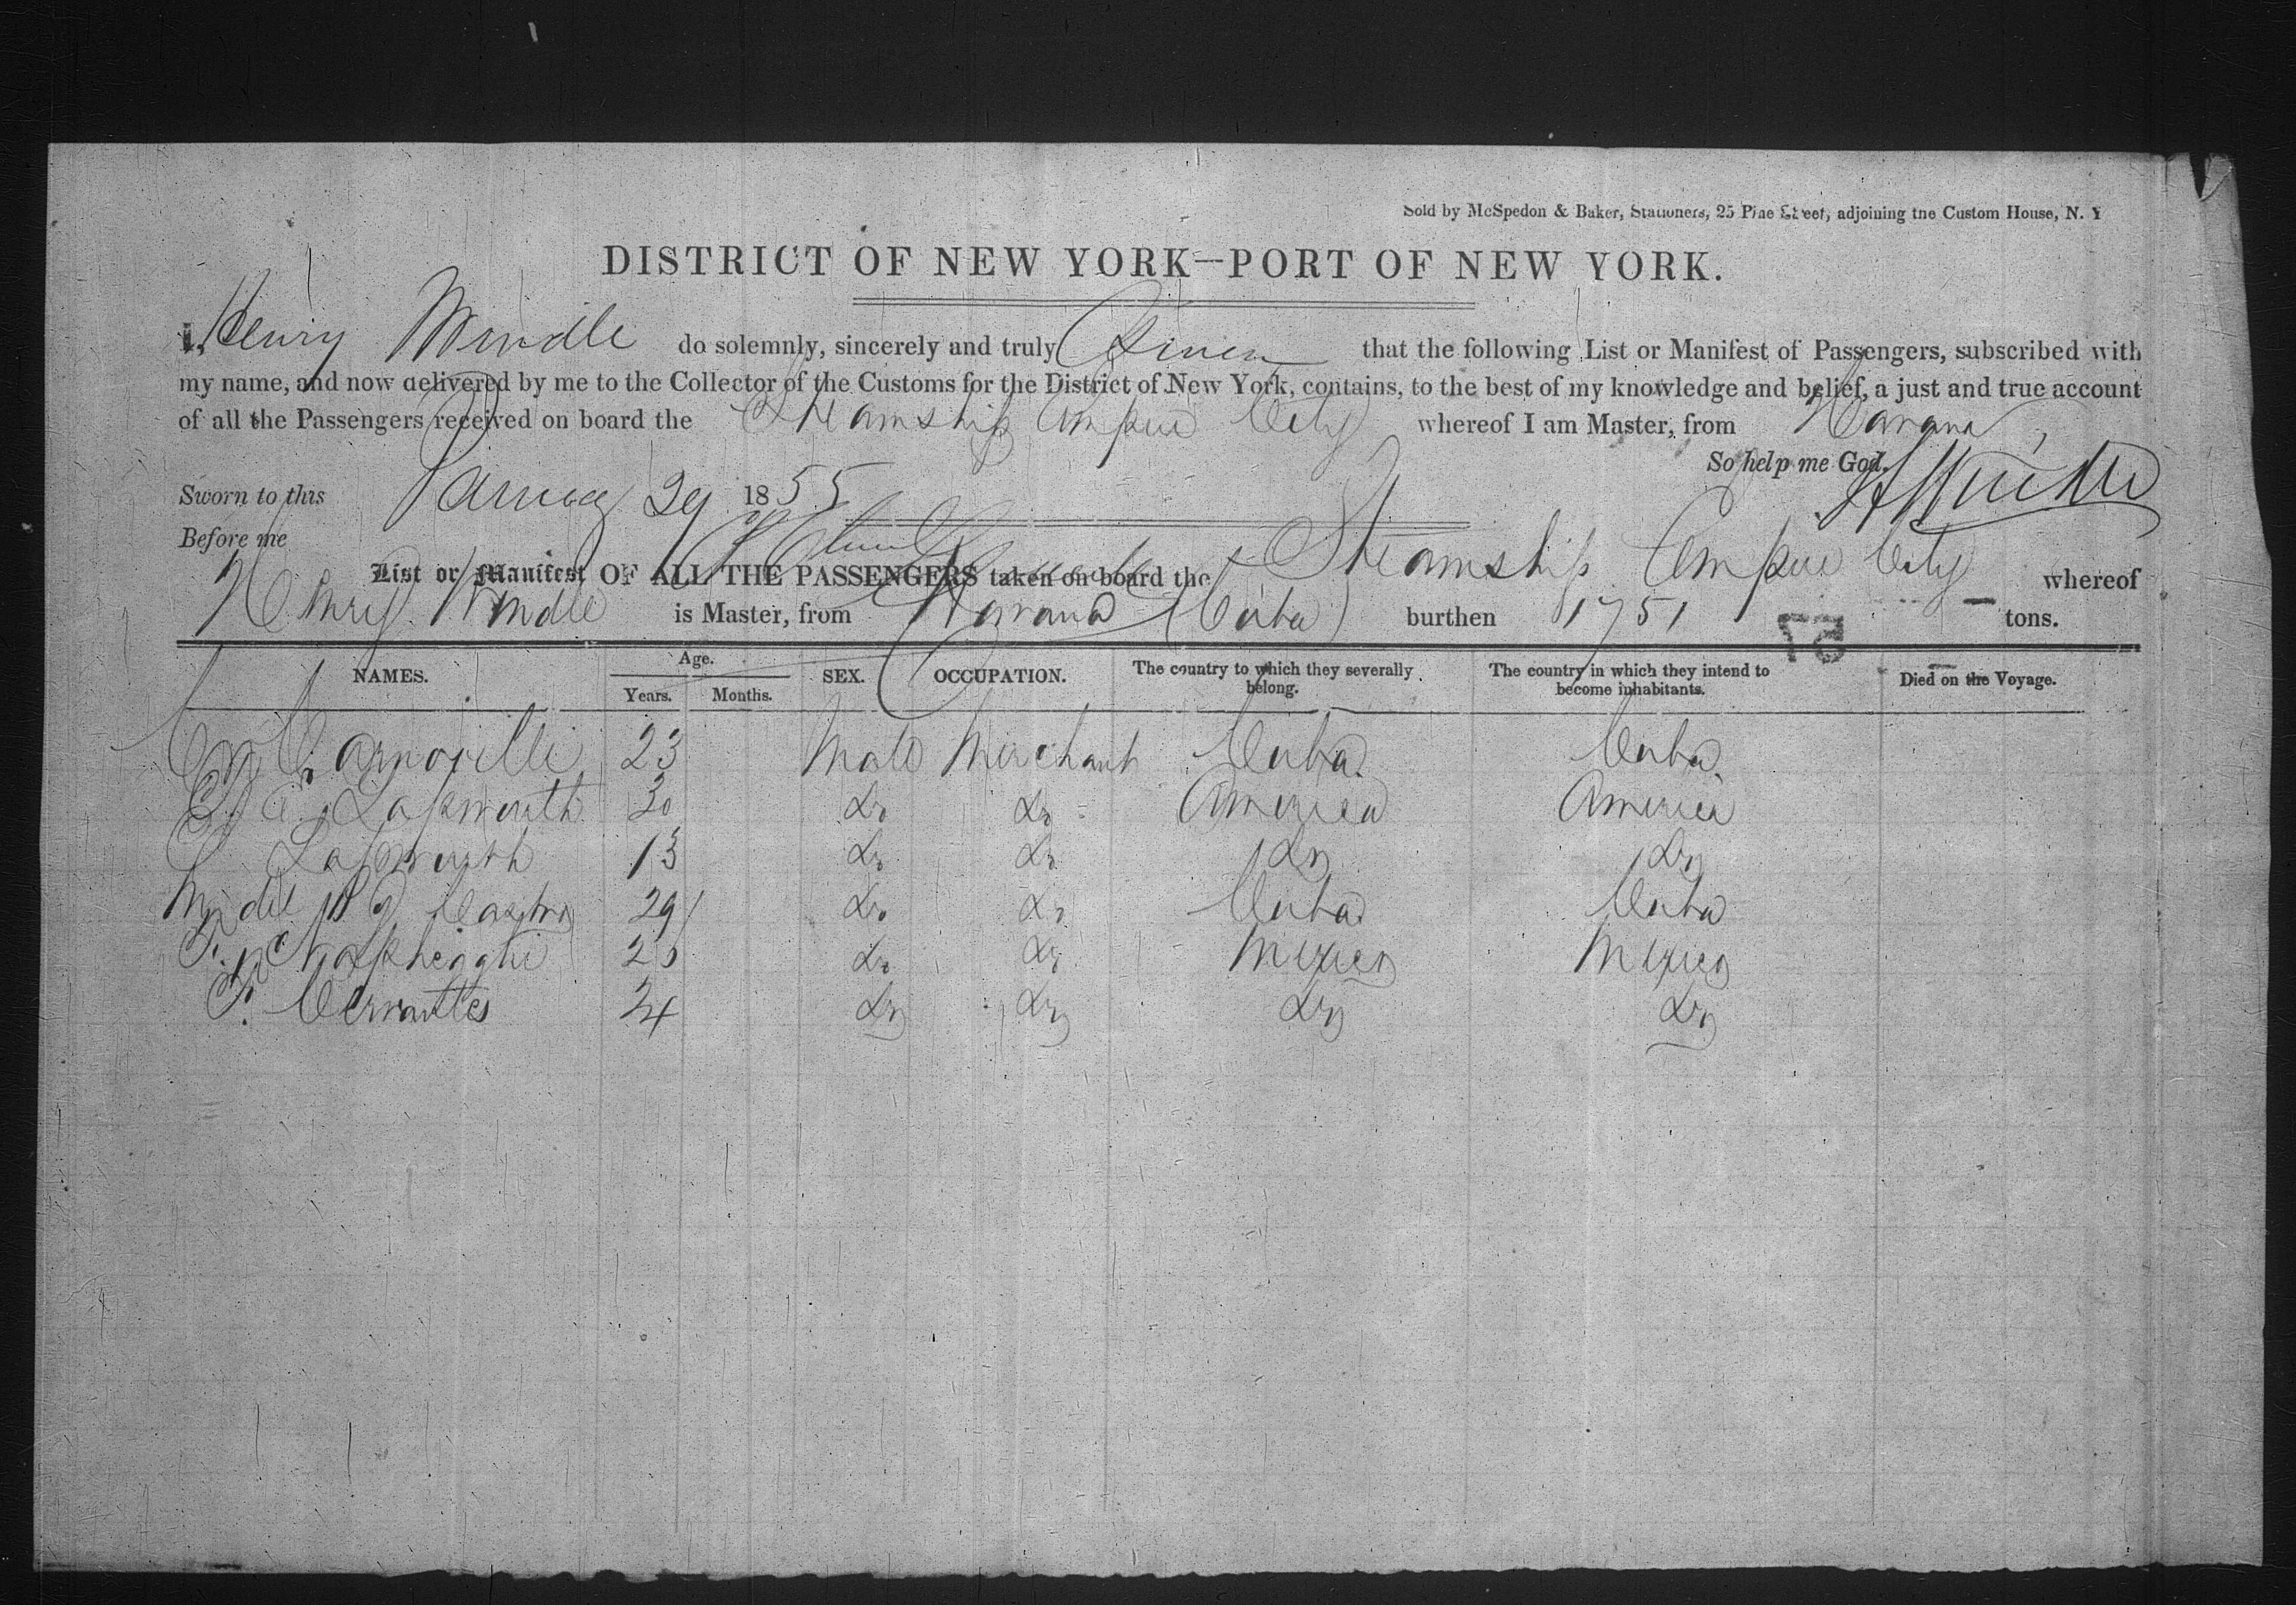 Sold by McSpedon & Baker, Stationers, 25 Pine Street, adjoining the Custom House, N. Y
DISTRICT OF NEW YORK—PORT OF NEW YORK.
I, Henry Windle do solemnly, sincerely and truly Swear that the following List or Manifest of Passengers, subscribed with
my name, and now delivered by me to the Collector of the Customs for the District of New York, contains, to the best of my knowledge and belief, a just and true account
of all the Passengers received on board the Steamship Empire City whereof I am Master, from Havana
So help me God.
Sworn to this January 29 1855
Before me
List or Manifest OF ALL THE PASSENGERS taken on board the Steamship Empire City whereof
Henry Windle is Master, from Havana (Cuba) burthen 1751 tons.
57
NAMES. Age. SEX. OCCUPATION. The country to which they severally belong. The country in which they intend to become inhabitants. Died on the Voyage.
Years. Months.
23 Male Merchant Cuba. Cuba.
Lapworth 30 Do Do America America
Lapworth 13 Do Do Do Do
M del Castro 29 Do Do Cuba Cuba
Do Do Mexico Mexico
F. Cervantes 24 Do Do Do Do